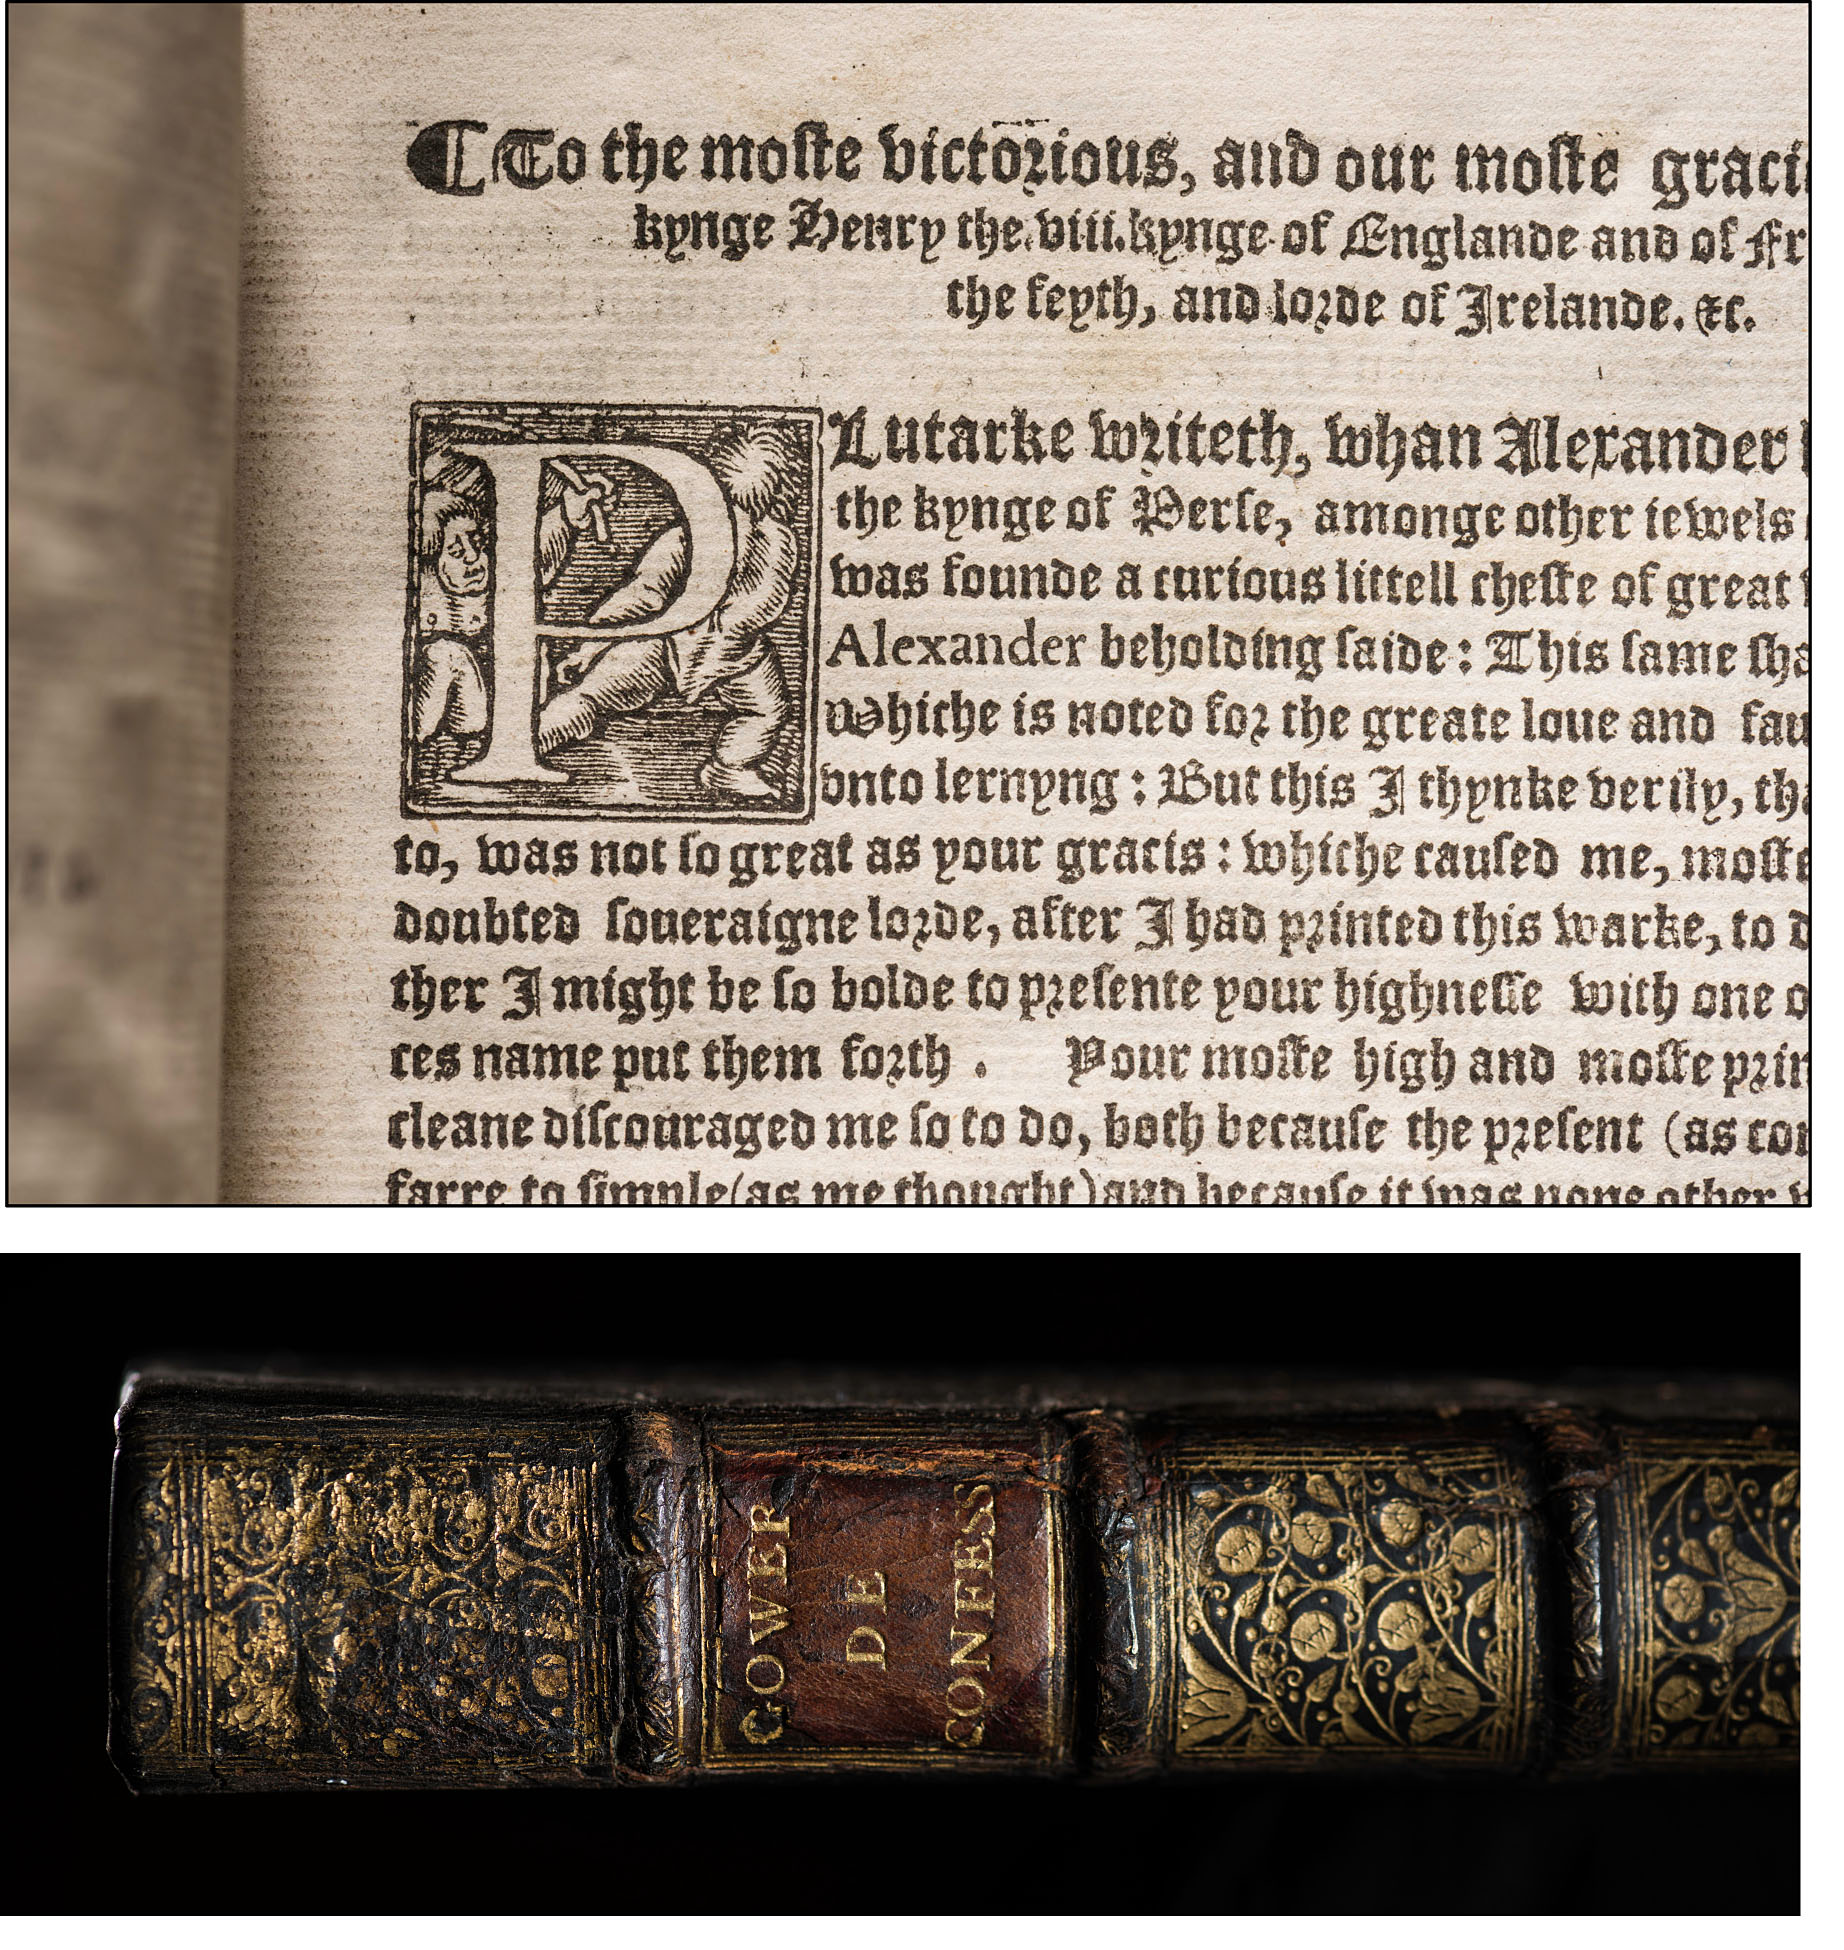 ¶ To the moſte victorious, and our moſte
kynge Henry the.viii.kynge of Englande and of
the feyth, and lorde of Irelande. &c.
PLutarke writeth, whan Alexander
the kynge of Perſe, amonge other iewels
was founde a curious littell cheſte of great
Alexander beholding ſaide: This ſame
whiche is noted for the greate loue and
vnto lernyng: But this I thynke verily,
to, was not ſo great as your gracis: whiche cauſed me, moſte
doubted ſoueraigne lorde, after I had printed this warke, to
ther I might be ſo bolde to preſente your highneſſe with one
ces name put them forth. Your moſte high and moſte
cleane diſcouraged me ſo to do, both becauſe the preſent (as
farre to ſimple(as me thought)and becauſe it was none other
GOWER
DE
CONFES